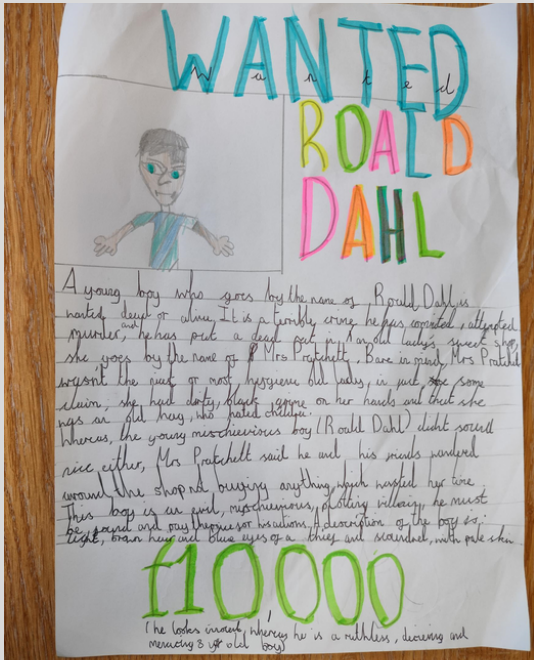 WANTED
Wanted
ROALD
DAHL
A young boy who goes by the name of Roald Dahl is
wanted dead or alive. It is a terribly crime he has comited, attempted
murder, and he has put a dead rat in an old lady's sweet shop,
she goes by the name of Mrs Pratchett. Bare in mind, Mrs Pratchet
wasn't the nicest or most hygiene old lady, in just some
claim, she had dirty, black grime on her hands and that she
was an old hag, who hated children.
Whereas, the young mischievious boy (Roald Dahl) didnt sound
nice either, Mrs Pratchett said he and his friends wandered
around the shop not buying anything which wasted her time.
This boy is an evil, mischievious, plotting villain, he must
be found and pay the price for his actions. A description of the boy is:
light, brown hair and blue eyes of a thief and scoundrel, with pale skin
£10,000
(he looks innocent, whereas he is a ruthless, and
8 yr old boy)